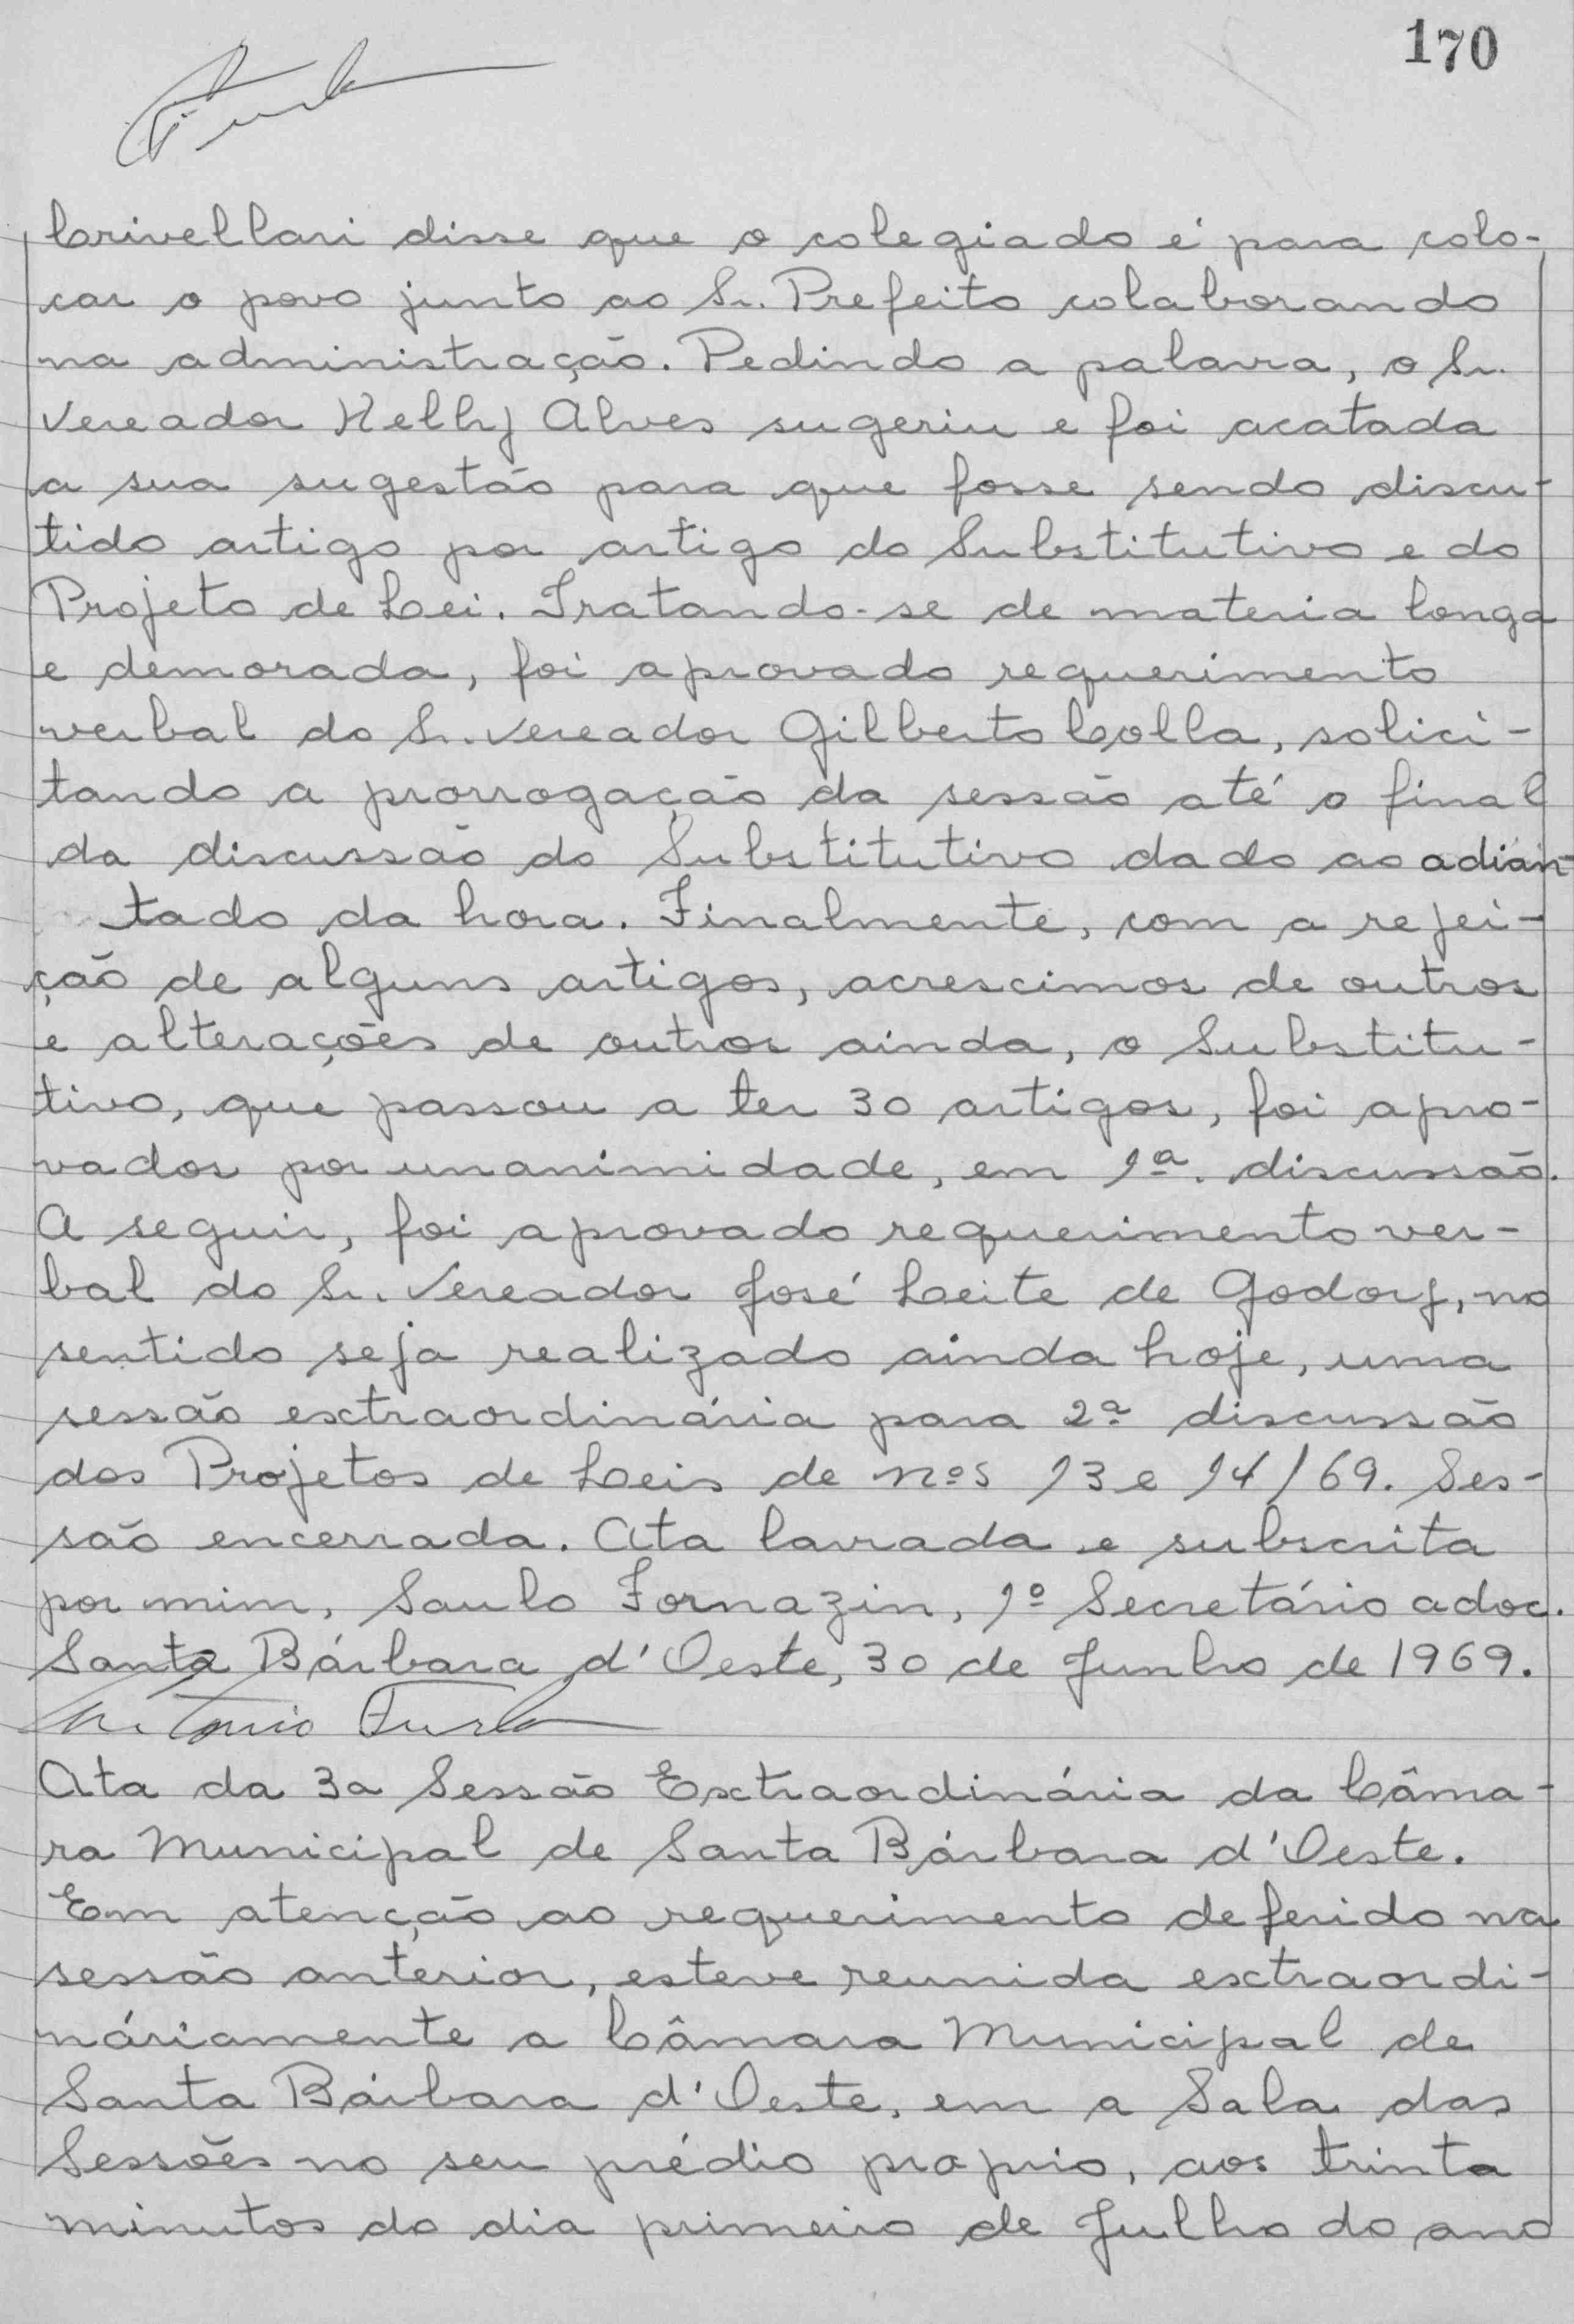 170
Crivellari disse que o colegiado é para colo-
car o povo junto ao Sr. Prefeito colaborando
na administração. Pedindo a palavra, o Sr.
Vereador Kelly Alves sugeriu e foi acatada
a sua sugestão para que fosse sendo discu-
tido artigo por artigo do Substitutivo e do
Projeto de Lei. Tratando-se de materia longa
e demorada, foi aprovado requerimento
verbal do Sr. Vereador Gilberto Colla, solici-
tando a prorrogação da sessão até o final
da discussão do Substitutivo dado ao adian-
tado da hora. Finalmente, com a rejei-
ção de alguns artigos, acrescimos de outros
e alterações de outros ainda, o Substitu-
tivo, que passou a ter 30 artigos, foi apro-
vados por unanimidade, em 1ª. discussão.
A seguir, foi aprovado requerimento ver-
bal do Sr. Vereador José Leite de Godoy, no
sentido seja realizado ainda hoje, uma
sessão extraordinária para 2ª discussão
dos Projetos de Leis de nºs 13 e 14/69. Ses-
são encerrada. Ata lavrada e subscrita
por mim, Saulo Fornazin, 1º Secretário adoc.
Santa Bárbara d'Oeste, 30 de Junho de 1969.
Antonio Furlan
Ata da 3a Sessão Extraordinária da Câma-
ra Municipal de Santa Bárbara d'Oeste.
Em atenção ao requerimento deferido na
sessão anterior, esteve reunida extraordi-
náriamente a Câmara Municipal de
Santa Bárbara d'Oeste, em a Sala das
Sessões no seu prédio proprio, aos trinta
minutos do dia primeiro de Julho do ano